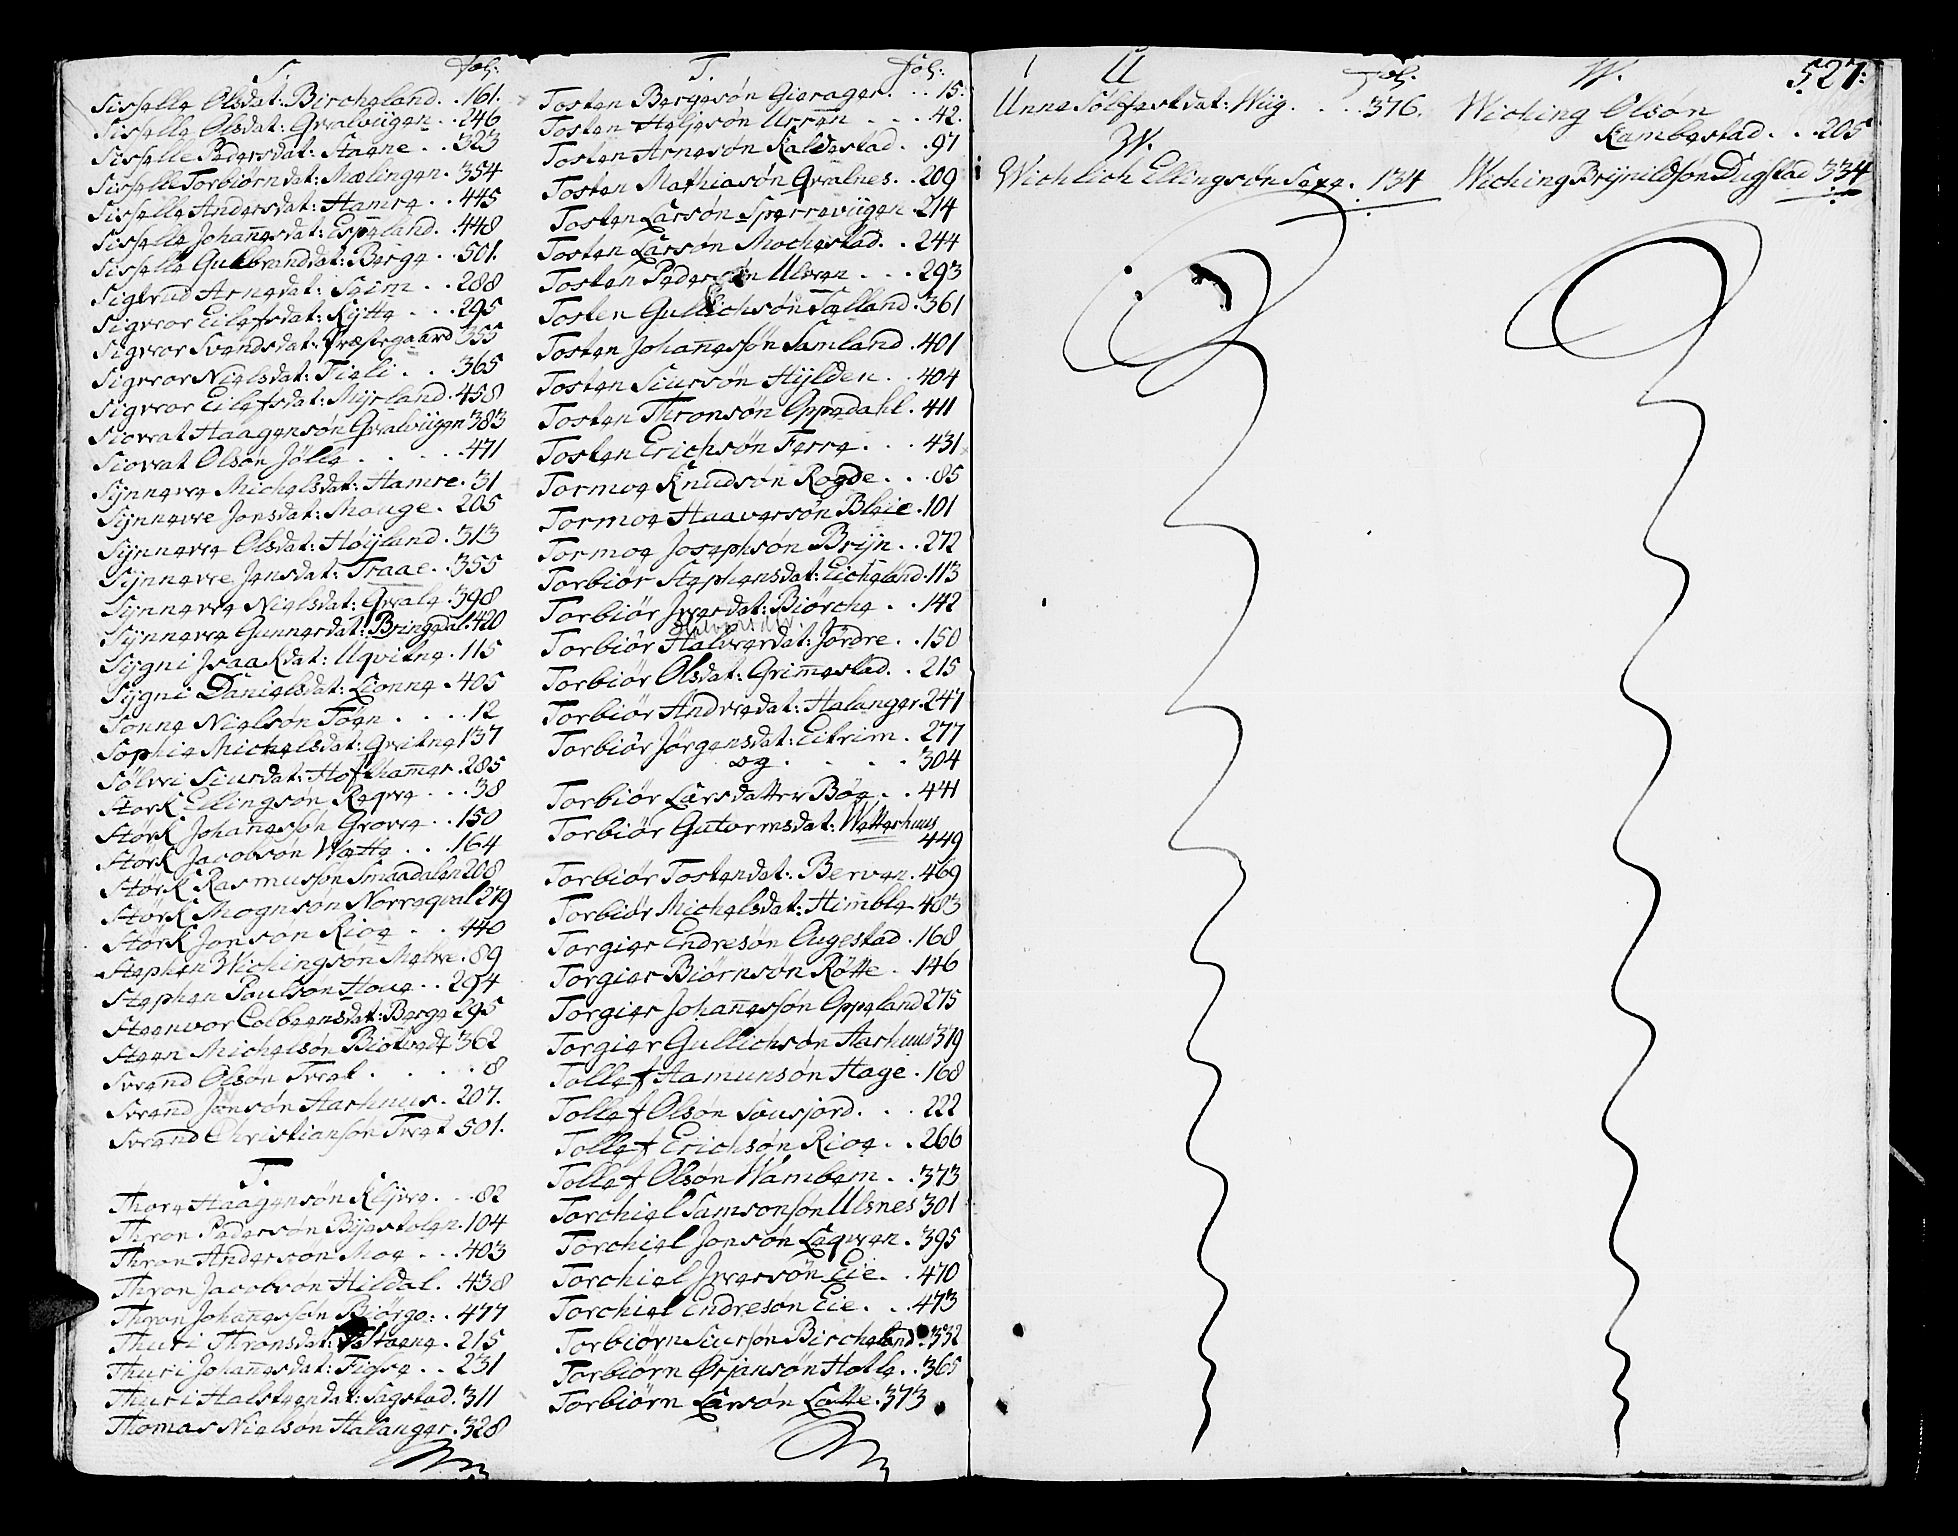 S. Fol:
Sisselle Olsdat: Bircheland. . 161.
Sisselle Olsdat: Qvalviigen . . 246
Sisselle Pedersdat: Aaene . . 323
Sisselle Torbiörndat: Mælingen . 354
Sisselle Andersdat: Hamre . . 445
Sisselle Johannesdat: Espeland . . 448
Sisselle Gulbranddat: Berge . . 501.
Sigtrud Arnedat: Seim . . 288
Sigvror Eilefsdat: Rÿtte . . . 295
Sigvror Svendsdat: Præstegaard 355
Sigvror Nielsdat: Tieli . . . 365
Sigvror Eilefsdat: Mÿrland . 458
Siovrat Haagensön Qvalviigen 383
Siovrat Olsön Jölle . . . . . 471
Sÿnnevve Michelsdat: Hamre . 31
Sÿnnevre Jonsdat: Mauge . 205
Sÿnnevve Olsdat: Höÿland . 313
Sÿnnevre Jensdat: Traae . . 355
Sÿnnevve Nielsdat: Qvale . 398
Sÿnnevve Gunnersdat: Bringedal . 420
Sÿgni Isaakdat: Uqvitne . 115
Sÿgni Danielsdat: Lionne . 405
Sonne Nielsön Töen . . . . . 12
Sophie Michelsdat: Qvitne 137
Sölvvi Siurdat: Hofthamer . 285
Störk Ellingsön Reqve . . . 38
Störk Johannessön Grovve . . 150
Störk Jacobsön Wætte . . . 164
Störk Rasmusson Smaadalen 208
Störk Mognsön Norreqval 279
Störk Jonsön Rioe . . . 440
Stephen Wichingsön Melvve . 89
Stephen Poulson Hove . . 294
Steenvor Colbeensdat: Berge 295
Steen Michelsön Biötvedt 362
Svrend Olsön Tvet . . . . . 8
Svrend Jönsön Aarhuus . 207.
Svrend Christiansön Tvet 501.
T.
Thore Haagensön Klÿvve . . . 82
Thron Pedersön Bÿestolen . 104
Thron Anderson Moe . . . 403
Thron Jacobsön Hildal . . 438
Thron Johannessön Biörgo: . 477
Thuri Thronsdat: . 215
Thuri Johannesdat: Tigse . . 231
Thuri Halsteendat: Sagstad . 311
Thomas Nielsön Halanger . 328
T. Fol:
Tosten Bergesön Gierager . . . 15.
Tosten Heljesön Urren . . . . 42.
Tosten Arnesön Kaldestad . . 97
Tosten Mathiasön Qvalnes . . 209
Tosten Larsön Sperreviigen . 214
Tosten Larsön Mochestad . . 244
Tosten Pedersön Ulvven . . . 293
Tosten Gullichsön Tælland . 361
Tosten Johannessön Samland . 401
Tosten Siursön Hÿlden . . 404
Tosten Thronsön Oppedahl . 411
Tosten Erichsön Ferre . . . 431
Tormoe Knudsön Rogde . . . 85
Tormoe Haaversön Bleie . 101
Tormoe Josephsön Brÿn . . 272
Torbiör Stephensdat: Eicheland . 113
Torbiör Jversdat: Biörche . . 142
Torbiör Halverdat: Jördre . . 150
Torbiör Olsdat: Grimestad . . 215
Torbiör Andvedat: Halanger . 247
Torbiör Jörgensdat: Eitrim . 277
og . . . . . 304
Torbiör Larsdatter Böe . . 441
Torbiör Gutormsdat: Wetterhuus
449
Torbiör Tostendat: Berven . 469
Torbiör Michelsdat: Himble 483
Torgier Endresön Augestad . 168
Torgier Biörnsön Rötte . 146
Torgier Johannessön Oppeland 275
Torgier Gullichsön Aarhuus 319
Tollef Aamunsön Hage . 168
Tollef Olsön Sousjord . . . 222
Tollef Erichsön Rioe . . 266
Tollef Olsön Wambem . . 373
Torchiel Samsonsön Ulsnes 301
Torchiel Jonsön Leqvven . 395
Torchiel Jversön Eie . . 470
Torchiel Endresön Eie . . 473
Torbiörn Siursön Bircheland . 332
Torbiörn Ørjansön Hotle . . 365
Torbiörn Larsön Lotte . 373
U Fol.
Unne Sölfæstdat: Wiig . . . . 376.
W.
Wichlich Ellingsön Sexe . 134
W. 527.
Wiching Olson
Kambestad . . 205
Wiching Brÿnildsön Dugstad 334